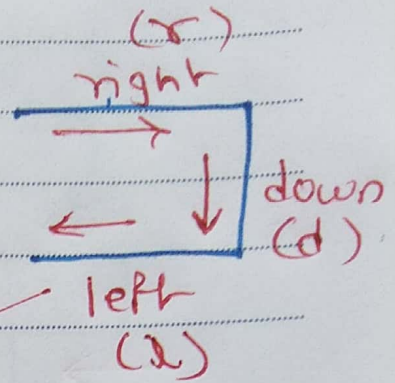 (r)
right
down
(d)
left
(l)